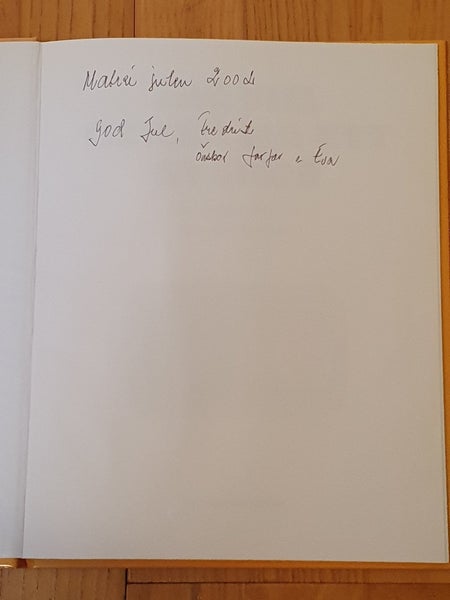 julen 2004
God Jul, Fredrik
önskar farfar o Eva